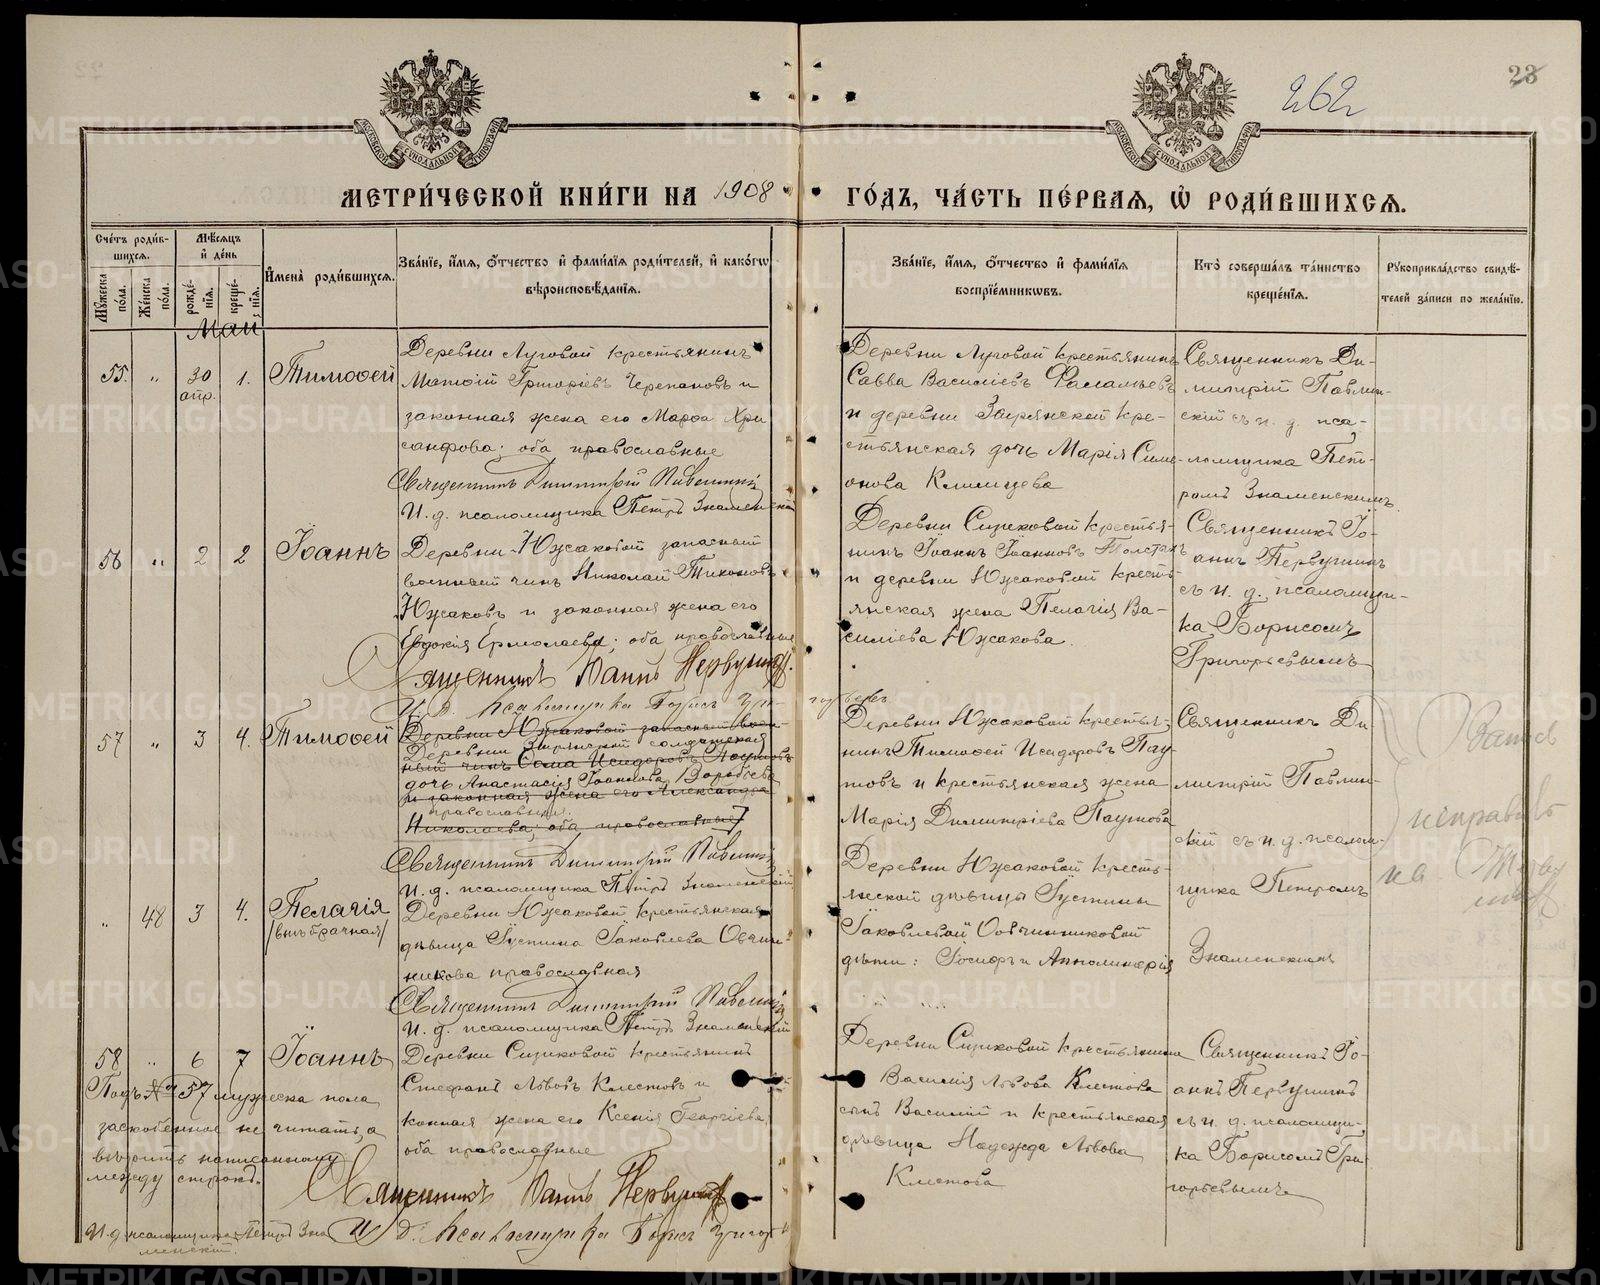 262
23
МЕТРИ́ЧЕСКОЙ КНИ́ГИ НА 1908 ГО́ДЪ, ЧА́СТЬ ПЕ́РВАЯ, Ѡ҆ РОДИ́ВШИХСЯ.
Сче́тъ роди́в-
шихся.
Мѣ́сяцъ
и҆ де́нь
И҆мена̀ роди́вшихся.
Зва́нїе, и҆́мя, ѻ҆́тчество и҆ фами́лїя роди́телей, и҆ како́гѡ
вѣроисповѣ́данїя.
Зва́нїе, и҆́мя, ѻ҆́тчество и҆ фами́лїя
воспрїе́мниковъ.
Кто̀ соверша́лъ та́инство
креще́нїя.
Рукоприкла́дство свидѣ́-
телей за́писи по жела́нїю.
Му́жеска по́ла.
Же́нска по́ла.
рожде́-нїя.
креще́-нїя.
Маи
55. " 30 апр. 1. Тимоѳей
Деревни Луговой крестьянинъ
Матѳій Григоріевъ Черепановъ и
законная жена его Марѳа Хри
санфова; оба православные
Священникъ Димитрій Павлинскій
И. д. псаломщика Петръ Знаменскій
Деревни Луговой крестьянинъ
Савва Василіевъ
и деревни Зырянской кре-
стьянская дочь Марія Симе-
онова Клищева
Священникъ Ди-
митрій Павлин-
скій съ и. д. пса-
ломщика Пет-
ромъ Знаменскимъ
56 " 2 2 Іоаннъ
Деревни Южаковой запасный
военный чинъ Николай Тихоновъ
Южаковъ и законная жена его
Евдокія Ермолаева; оба православные
Священникъ Іоаннъ Первушинъ.
И. д. псаломщика Борисъ Гри-
горьевъ
Деревни Сизиковой крестья-
нинъ Іоаннъ Іоанновъ
и деревни Южаковой кресть-
янская жена Пелагія Ва-
силіева Южакова.
Священникъ Іо-
аннъ Первушинъ
съ и. д. псаломщи-
ка Борисомъ
Григорьевымъ
57 " 3 4. Тимоѳей
Деревни Южаковой запасный воен-
Деревни Зырянской солдатская
ный чинъ Савва Исидоровъ Паутовъ
дочь Анастасія Іоаннова Воробьева
и законная жена его Александра
православная.
Николаева; оба православные]
Священникъ Димитрій Павлинскій
И. д. псаломщика Петръ Знаменскій
Деревни Южаковой крестья-
нинъ Тимоѳей Исидоровъ Пау-
товъ и крестьянская жена
Марія Димитріева Паутова
Священникъ Ди-
митрій Павлин-
скій съ и. д. псалом-
щика Петромъ
Знаменскимъ
исправить
на
" 48 3 4. Пелагія
/внѣбрачная/
Деревни Южаковой крестьянская
дѣвица Іустина Іаковлева Овчин-
никова православная
Священникъ Димитрій Павлинскій
И. д. псаломщика Петръ Знаменскій
Деревни Южаковой кресть-
янской дѣвицы Іустины
Іаковлевой Овчинниковой
дѣти: Іосифъ и Апполинарія
58 " 6 7 Іоаннъ
Деревни Сизиковой крестьянинъ
Стефанъ Львовъ Клестовъ и
конная жена его Ксенія Георгіева
оба православные
Священникъ Іоаннъ Первушинъ
И. Д. Псаломщика Борисъ Григорь
Деревни Сизиковой крестьянина
Василія Львова Клестова
сынъ Василій и крестьянская
дѣвица Надежда Львова
Клестова
Священникъ Іо-
аннъ Первушинъ
съ и. д. псаломщи-
ка Борисомъ Гри-
горьевымъ
Подъ № 57 мужеска пола
заскобленное не читать, а
вѣрить написанному
между строкъ.
И. д. псаломщика Петръ Зна
менскій.
METRIKI.GASO-URAL.RU